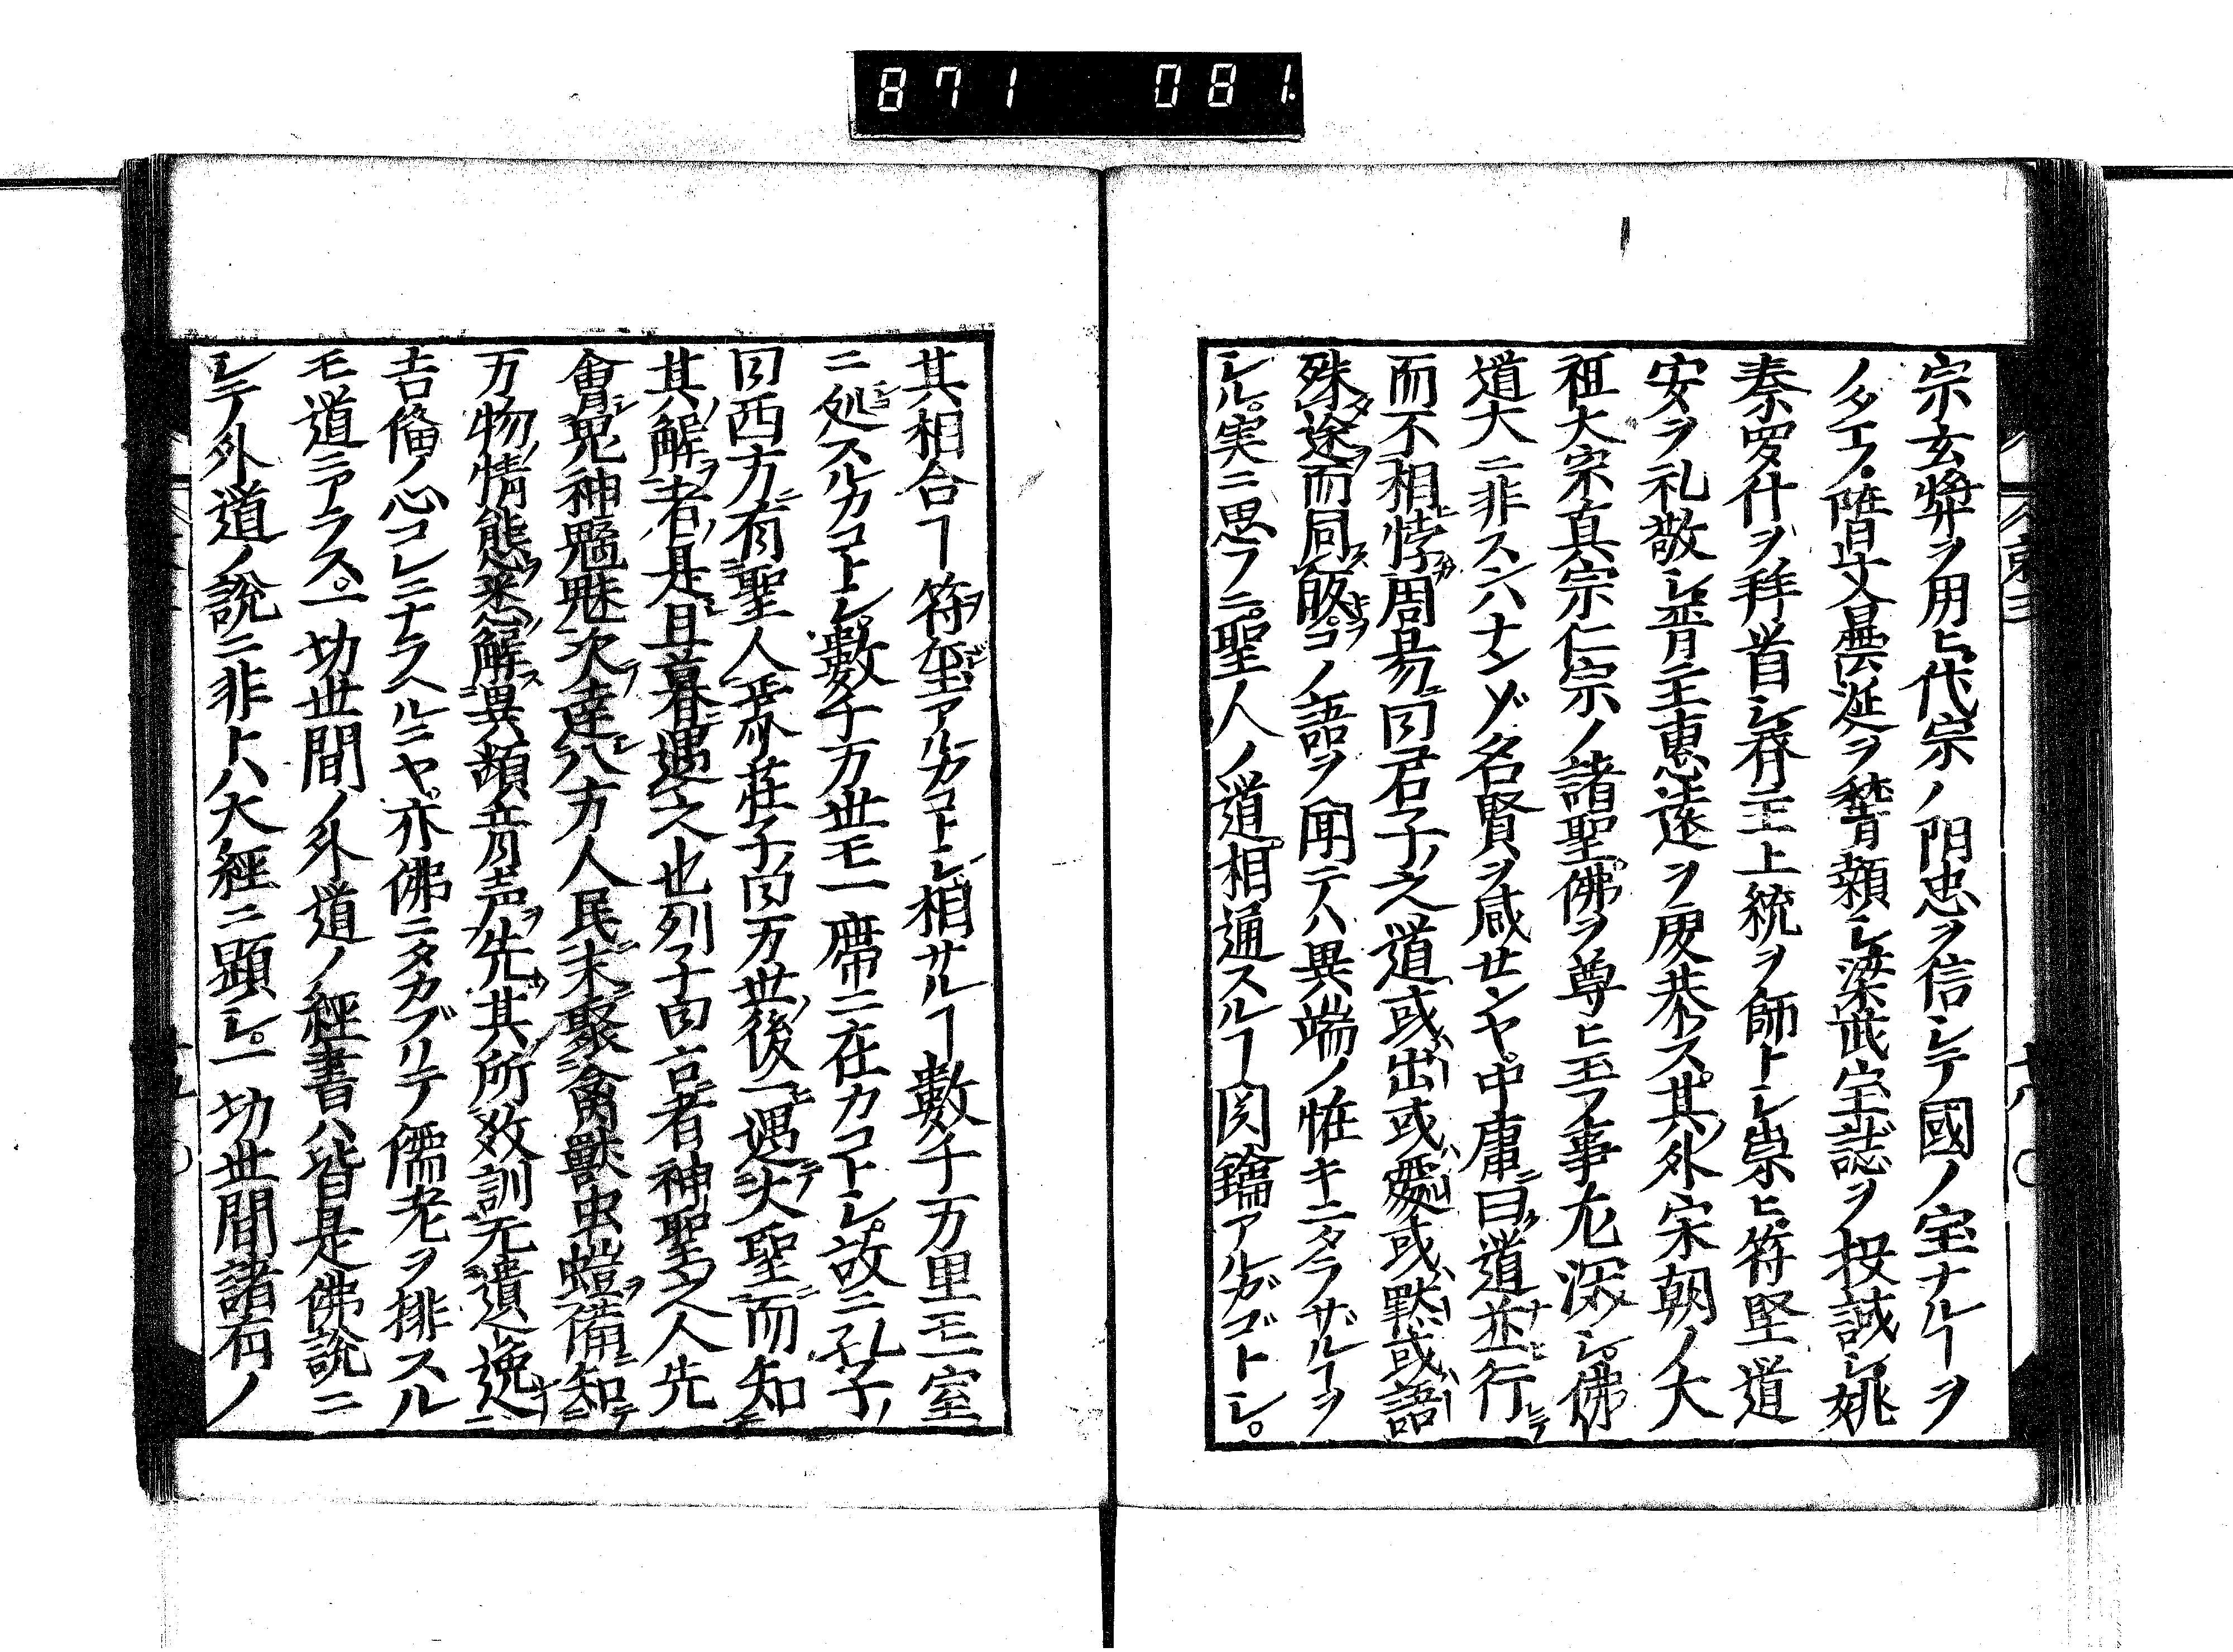 871 081.
宗玄奘ヲ用ヒ代宗ノ陽忠ヲ信レテ國ノ宝ナルヿヲ
ノタエフ隋文曇延ヲ輦額シ梁武宝誌ヲ投誠シ姚
秦羅什ヲ拜首シ斉王上統ヲ師トシ崇ヒ符堅道
安ヲ礼敬シ晋王惠遠ヲ虔恭ス其外宋朝ノ大
祖大宗真宗仁宗ノ諸聖佛ヲ尊ヒ玉フ事尤深シ佛
道大ニ非スハナンゾ名賢ヲ咸センヤ中庸曰道並行
而不相悖周易曰君子之道或出或處或黙或語
殊途而同皈コノ語ヲ聞テハ異端ノ惟キニタラザルヿヲ
シル実ニ思フニ聖人ノ道相通スルヿ関鑰アルガゴトシ。
其相合ヿ符璽アルカコトシ相サルヿ數千万里モ一室
ニ処スルカコトシ數千万世モ一席ニ在カコトシ故ニ孔子
曰西方有聖人焉荘子曰万世後一遇大聖而知
其解者是且暮遇之也列子曰言者神聖之人先
會鬼神魑魅次達八方人民末聚禽獣虫螘備知
万物情態悉解異類音声先其所教訓无遺逸
吉備ノ心コレニナラヘルニヤ亦佛ニタカブリテ儒老ヲ排スル
モ道ニアラス。一切世間ノ外道ノ經書ハ皆是佛説ニ
レテ外道ノ説ニ非トハ大經ニ顕シ。一切世間諸有ノ